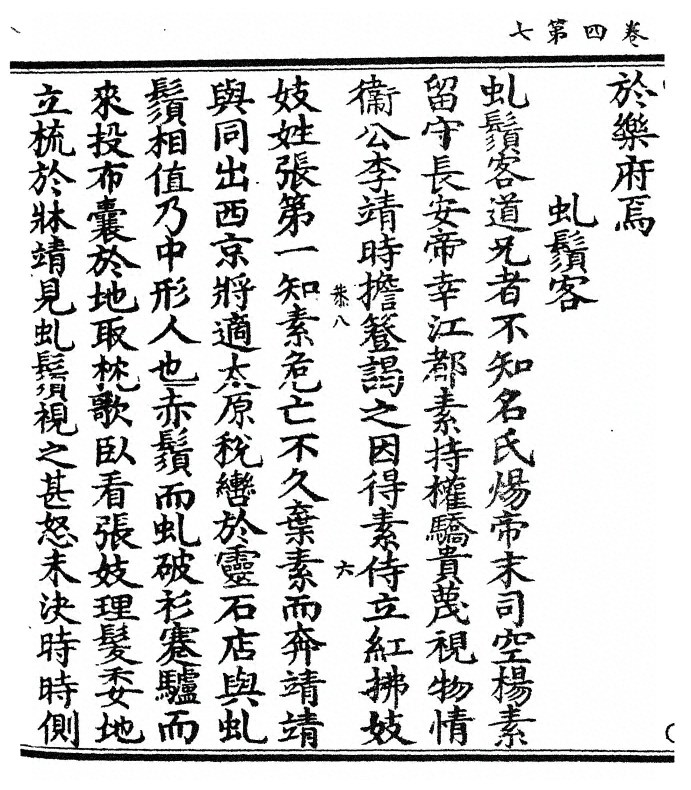 卷四第七
於樂府焉
虬鬚客
虬鬚客道兄者不知名氏煬帝末司空楊素
留守長安帝幸江都素持權驕貴蔑視物情
衞公李靖時擔簦謁之因得素侍立紅拂妓
八 六
妓姓張第一知素危亡不久棄素而奔靖靖
與同出西京將適太原稅轡於靈石店與虬
鬚相值乃中形人也赤鬚而虬破衫蹇驢而
來投布囊於地取枕欹臥看張妓理髮委地
立梳於牀靖見虬鬚視之甚怒未決時時側